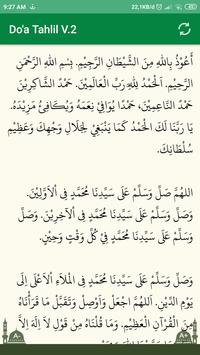 9:27 AM
22,1KB/d
Do'a Tahlil V.2
أَعُوْذُ بِاللهِ مِنَ الشَّيْطَانِ الرَّجِيْمِ. بِسْمِ اللهِ الرَّحْمَنِ
الرَّحِيْمِ. اَلْحَمْدُ لِلَّهِ رَبِّ الْعَالَمِيْنَ. حَمْدًا الشَّاكِرِيْنَ
حَمْدًا النَّاعِمِيْنَ، حَمْدًا يُوَافِيْ نِعَمَهُ وَيُكَافِئُ مَزِيْدَهُ.
يَا رَبَّنَا لَكَ الْحَمْدُ كَمَا يَنْبَغِيْ لِجَلَالِ وَجْهِكَ وَعَظِيْمِ
سُلْطَانِكَ.
اَللهُمَّ صَلِّ وَسَلِّمْ عَلَى سَيِّدِنَا مُحَمَّدٍ فِي الْاَوَّلِيْنَ.
وَصَلِّ وَسَلِّمْ عَلَى سَيِّدِنَا مُحَمَّدٍ فِي الْآخِرِيْنَ. وَصَلِّ
وَسَلِّمْ عَلَى سَيِّدِنَا مُحَمَّدٍ فِيْ كُلِّ وَقْتٍ وَحِيْنٍ.
وَصَلِّ وَسَلِّمْ عَلَى سَيِّدِنَا مُحَمَّدٍ فِي الْمَلَاءِ الْاَعْلَى اِلَى
يَوْمِ الدِّيْنِ. اَللهُمَّ اجْعَلْ وَاَوْصِلْ وَتَقَبَّلْ مَا قَرَأْنَاهُ
مِنَ الْقُرْآنِ الْعَظِيْمِ. وَمَا قُلْنَاهُ مِنْ قَوْلِ لَا اِلَهَ اِلَّا